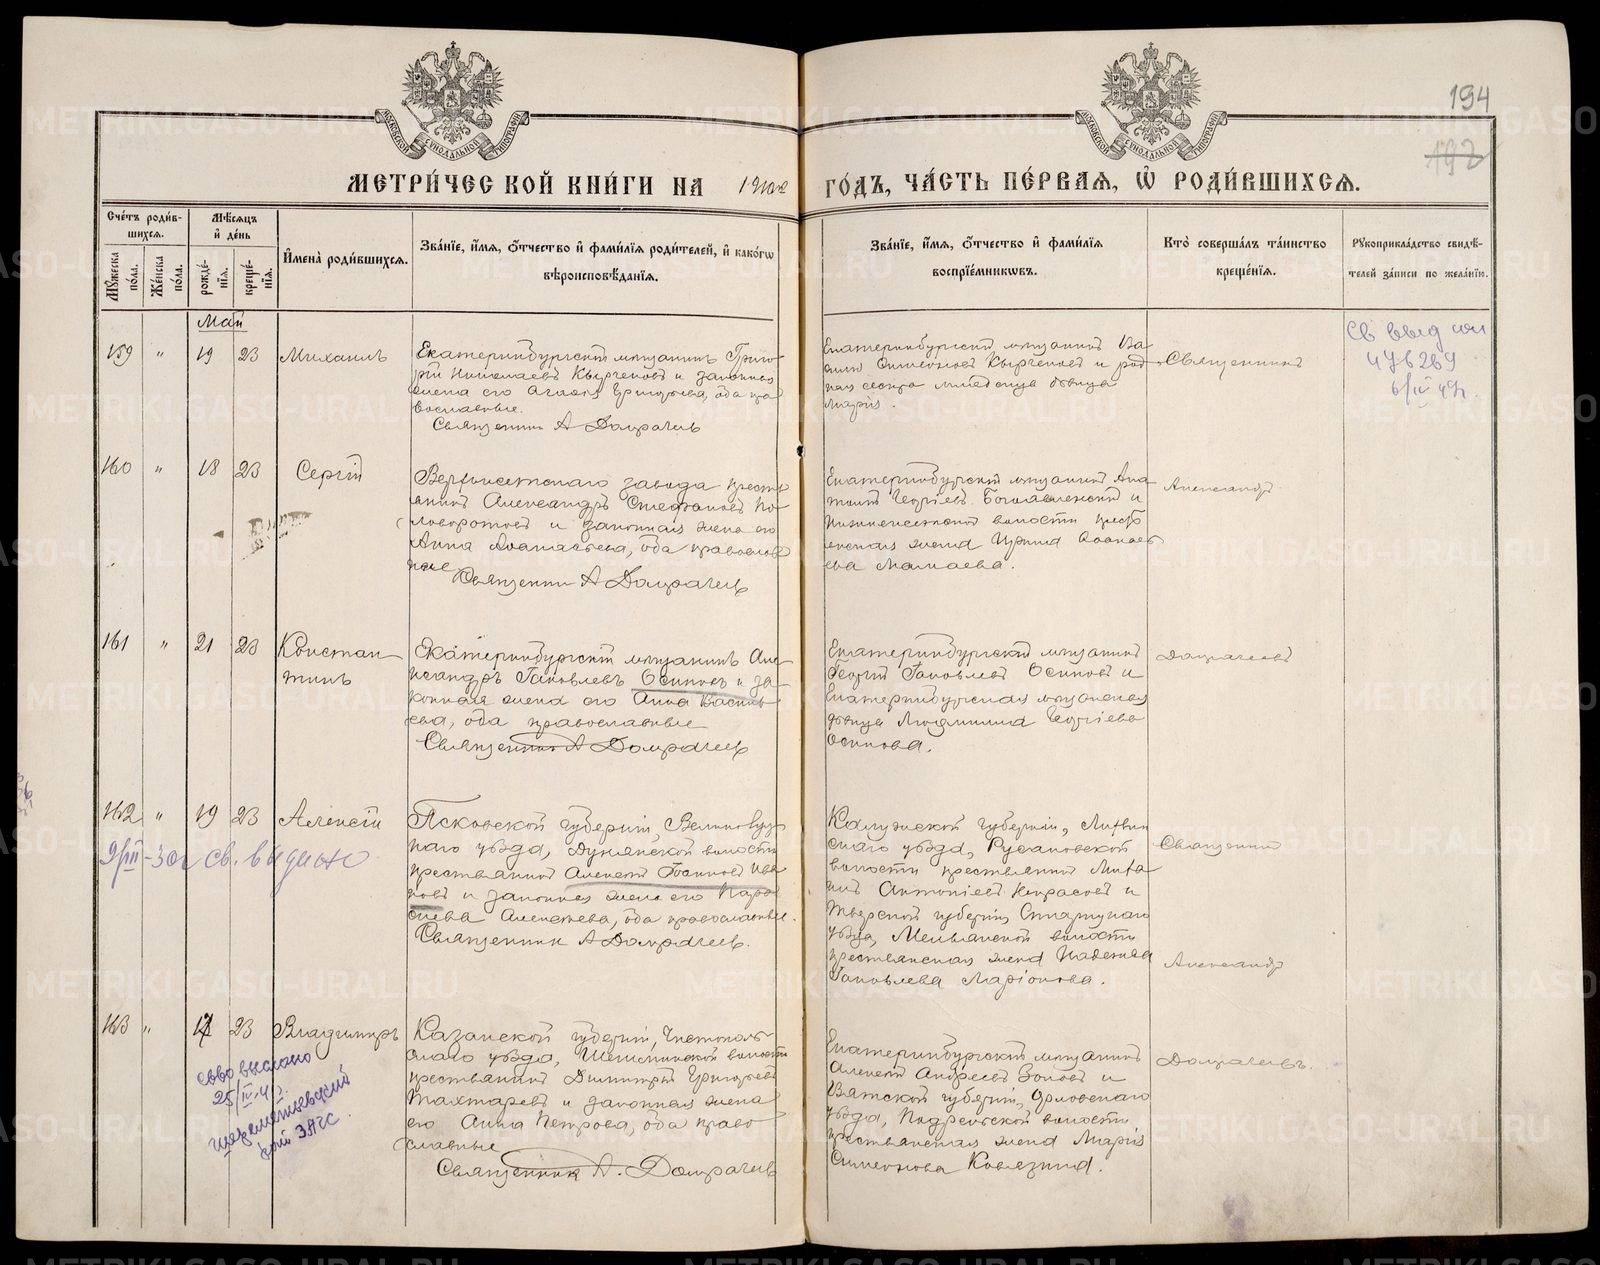 194
192
МЕТРИ́ЧЕСКОЙ КНИ́ГИ НА 1902 ГО́ДЪ, ЧА́СТЬ ПЕ́РВАЯ, Ѡ РОДИ́ВШИХСЯ.
Сче́тъ роди́в-
шихся.
Мужеска по́ла.
Же́нска по́ла.
Мѣ́сяцъ
и҆ де́нь
рожде́-
нїя.
креще́-
нїя.
И҆мена̀ роди́вшихся.
Зва́нїе, и҆́мя, ѻ҆́тчество и҆ фами́лїя роди́телей, и҆ како́гѡ
вѣроисповѣ́данїя.
Зва́нїе, и҆́мя, ѻ҆́тчество и҆ фами́лїя
воспрїе́мникѡвъ.
Кто̀ соверша́лъ та́инство
креще́нїя.
Рукоприкла́дство свидѣ́-
телей за́писи по жела́нїю.
Май
159 " 19 23 Михаилъ
Екатеринбургскій мѣщанинъ Григо-
рій Николаевъ и законная
жена его Григорьева, оба пра-
вославные.
Священникъ А Домрачевъ
Екатеринбургскій мѣщанинъ Ва-
силій Симеоновъ и род
ная сестра младенца дѣвица
Марія.
Священникъ
Св выд
476269
6/IV 49г.
160 " 18 23 Сергій
Верхисетскаго завода кресть
янинъ Александръ Стефановъ По-
ловоротовъ и законная жена его
Анна Афанасьева, оба православ
ные
Священникъ А Домрачевъ
Екатеринбургскій мѣщанинъ Ана
толій Георгіевъ Богоявленскій и
волости крест
янская жена Ирина Афанась
ева Мамаева.
Александр
161 " 21 23 Констан-
тинъ
Екатеринбургскій мѣщанинъ Але-
ксандръ Іаковлевъ Осиповъ и за-
конная жена его Анна Василь
ева, оба православные
Священникъ А Домрачевъ
Екатеринбургскій мѣщанинъ
Георгій Іаковлевъ Осиповъ и
Екатеринбургская мѣщанская
дѣвица Людмила Георгіева
Осипова.
Домрачевъ
162 " 19 23 Алексій
9/III-30г св. выдано
Псковской губерніи, Великолуц
каго уѣзда, волости
крестьянинъ Алексій Іосифовъ Ива
новъ и законная жена его Парас
кева Алексѣева, оба православные.
Священникъ А Домрачевъ.
Калужской губерніи, Лихвин
скаго уѣзда, Русановской
волости крестьянинъ
Антоніевъ Некрасовъ и
Тверской губерніи Старицкаго
уѣзда, волости
крестьянская жена Надежда
Іаковлева Ларіонова.
Священник
Александр
163 " 12 23 Владимиръ
св-во выслано
25/IV-41г.
Шереметьевский
рай ЗАГС
Казанской губерніи, Чистополь-
скаго уѣзда, волости
крестьянинъ Димитрій Григорьевъ
Тахтаревъ и законная жена
его Анна Петрова, оба право
славные
Священникъ А. Домрачевъ
Екатеринбургскій мѣщанинъ
Алексій Андреевъ и
Вятской губерніи, Орловскаго
уѣзда, волости
крестьянская жена Марія
Симеонова Ковязина.
Домрачевъ.